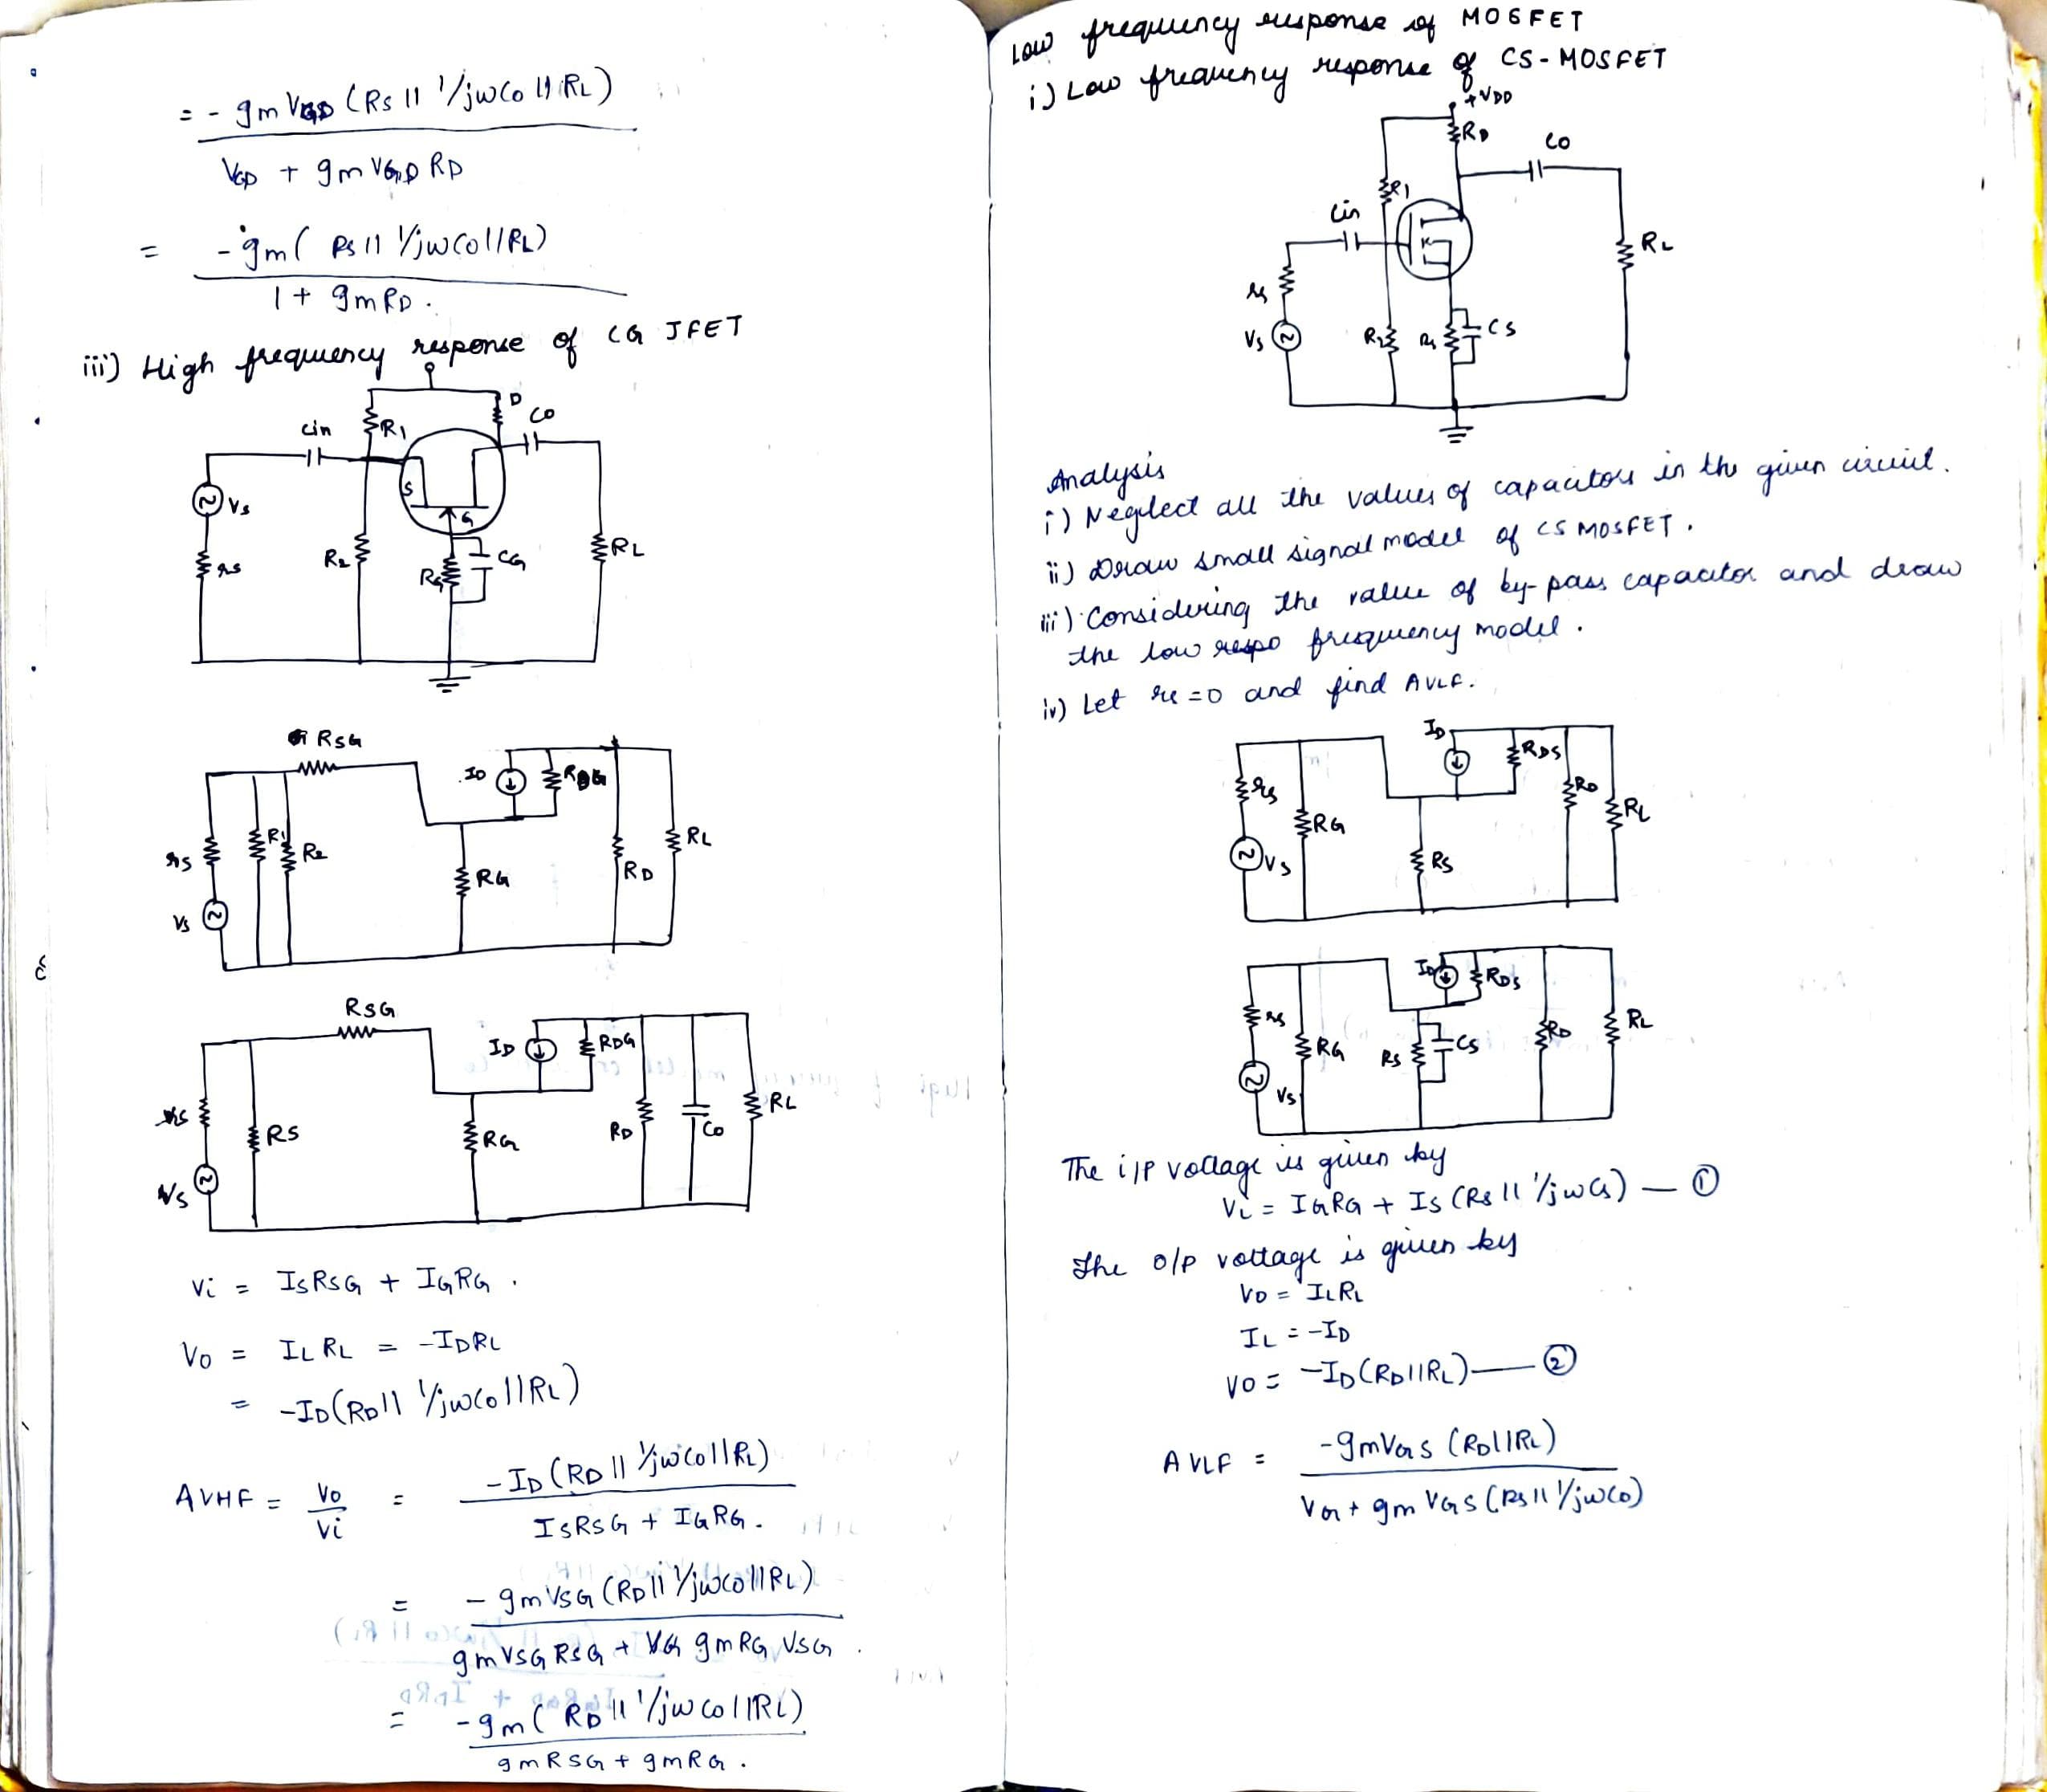 = - gm VGD (Rs || 1/jωCo || RL)
VGD + gm VGD RD
= - gm ( Rs || 1/jωCo || RL)
1 + gm RD .
iii) High frequency response of CG JFET
D
Co
Cin
R1
S
G
Vs
rs
R2
RG
CG
RL
RSG
ID
RDG
R1
R2
RL
rs
RG
RD
Vs
RSG
ID
RDG
RL
rs
RS
RG
RD
Co
Vs
Vi = ISRSG + IGRG .
Vo = IL RL = -IDRL
= -ID(RD || 1/jωCo || RL)
AVHF = Vo/Vi = -ID (RD || 1/jωCo || RL)
ISRSG + IGRG .
= - gm VSG (RD || 1/jωCo || RL)
gm VSG RSG + gm RG VSG .
= - gm ( RD || 1/jωCo || RL)
gm RSG + gm RG .
Low frequency response of MOSFET
i) Low frequency response of CS-MOSFET
+VDD
RD
Co
R1
Cin
RL
rs
Vs
R2
Rs
Cs
Analysis
i) Neglect all the values of capacitors in the given circuit.
ii) Draw small signal model of CS MOSFET .
iii) Considering the value of by-pass capacitor and draw
the low respo frequency model .
iv) Let rs = 0 and find AVLF.
ID
RDS
rs
RD
RL
RG
Vs
RS
ID
RDS
rs
RG
RS
CS
RD
RL
Vs
The i/P voltage is given by
Vi = IGRG + IS (Rs || 1/jωCs) — ①
The o/p voltage is given by
VO = ILRL
IL = -ID
VO = -ID(RD||RL) — ②
AVLF = -gmVGS (RD||RL)
VG + gm VGS (RS || 1/jωCo)